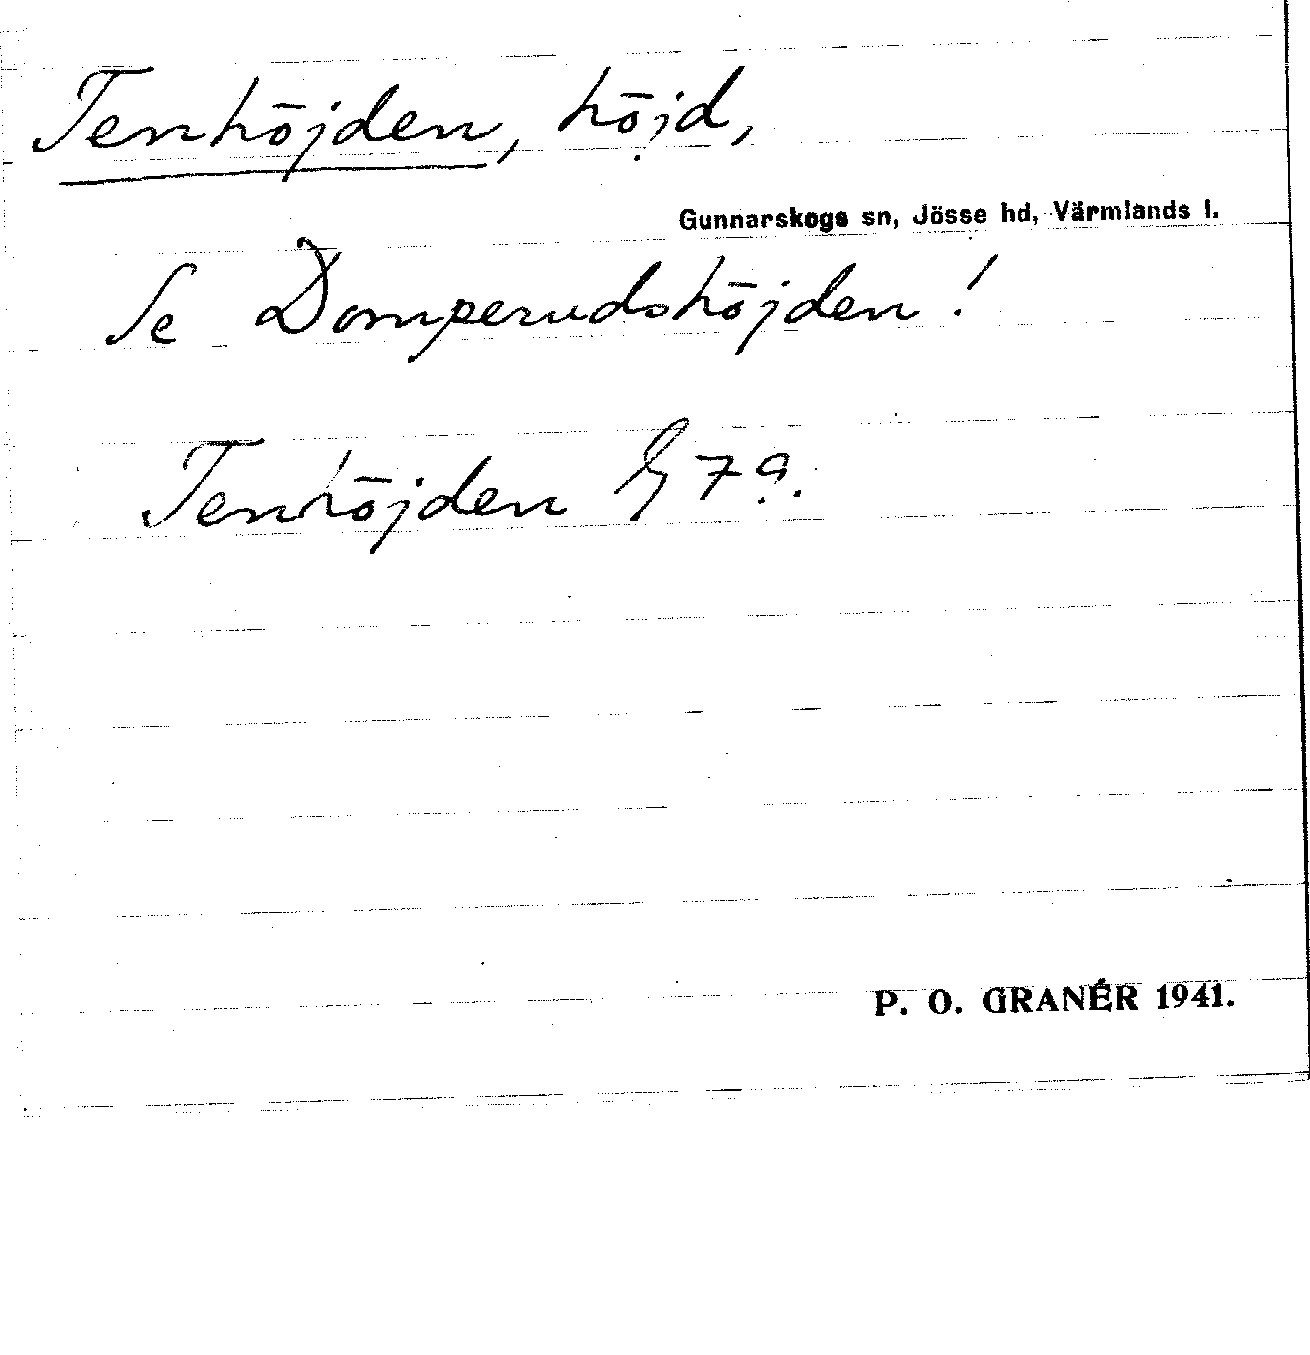 Tenhöjden, höjd,
Gunnarskogs sn, Jösse hd, Värmlands l.
Se Domperudshöjden!
Tenhöjden G 7 a.
P. O. GRANÉR 1941.